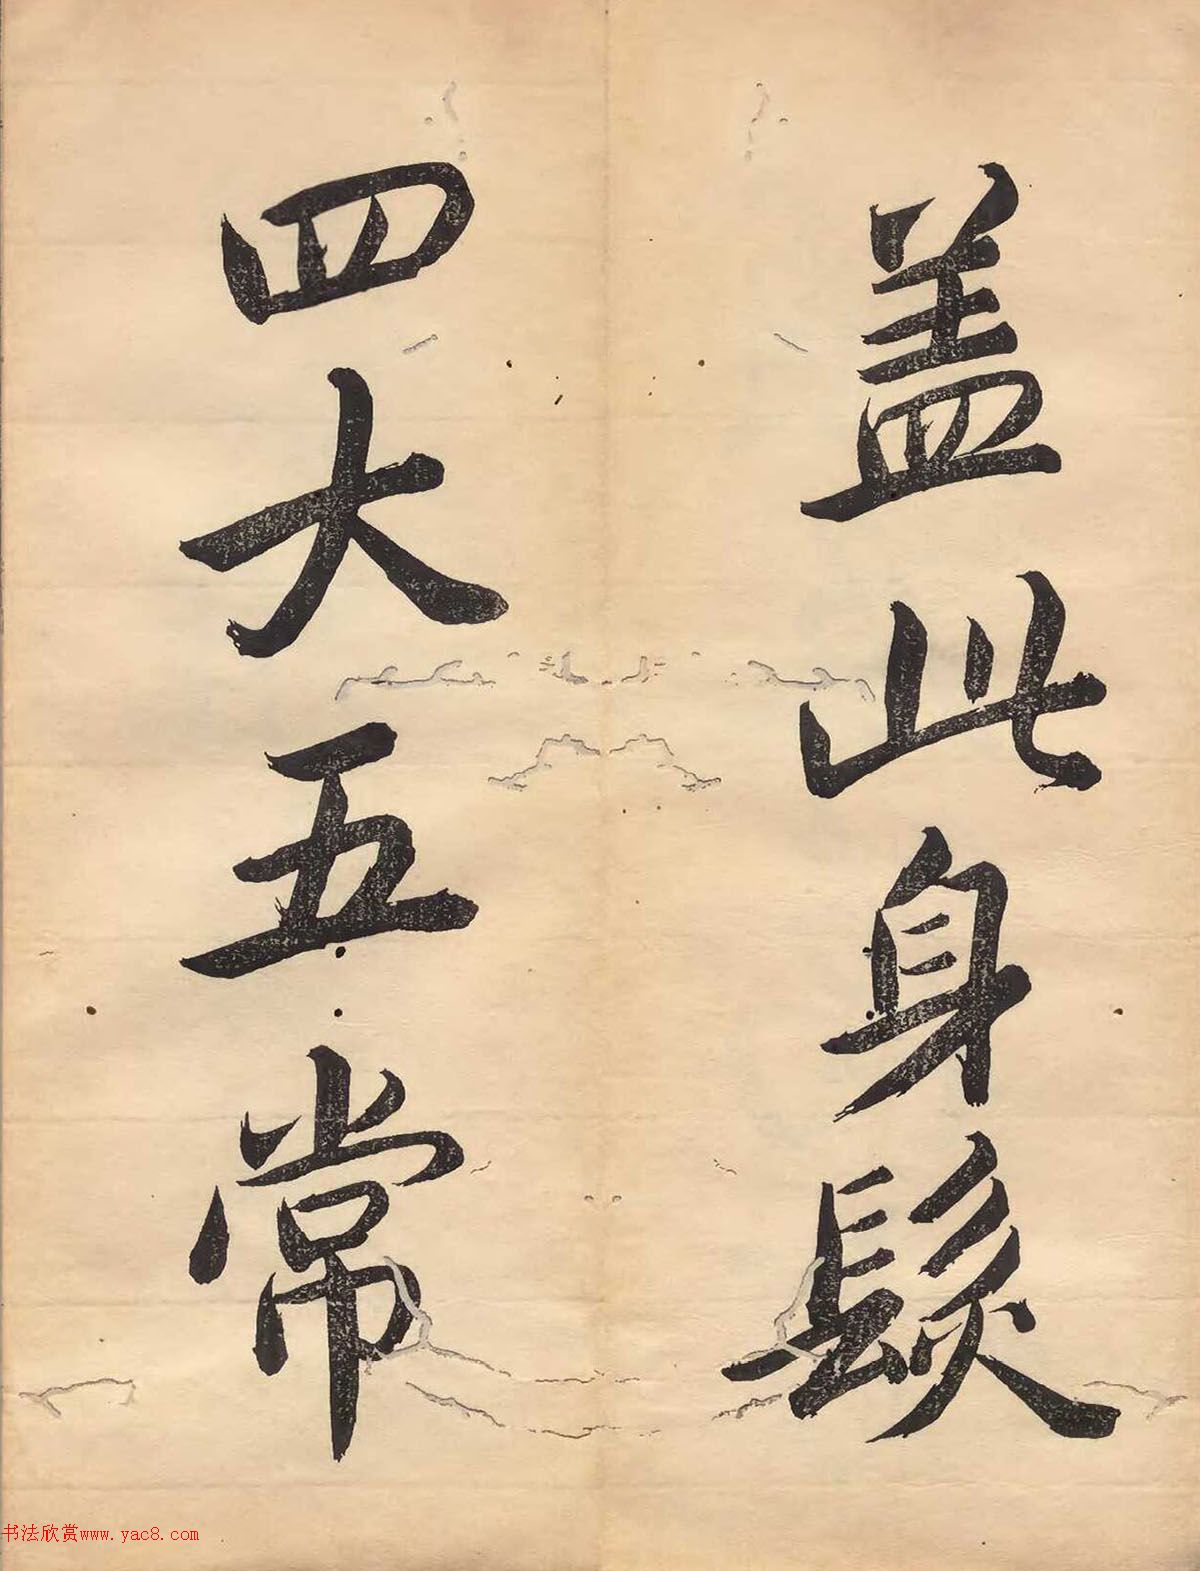 盖此身髮
四大五常
书法欣赏www.yac8.com